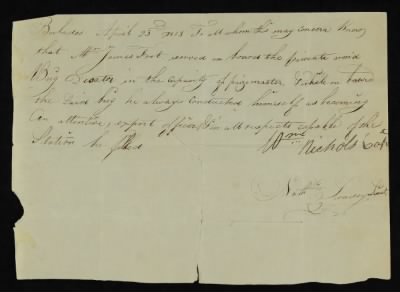 Barbados April 23rd 1813 To All whom this may concern Know
that Mr. James Foot served on board the private armed
Brig Decatur in the capacity of prizemaster & while on board
the said brig he always conducted himself as becoming
an attentive, expert officer & in all respects capable of the
Station he filled
Wm Nichols
Nath Lieut